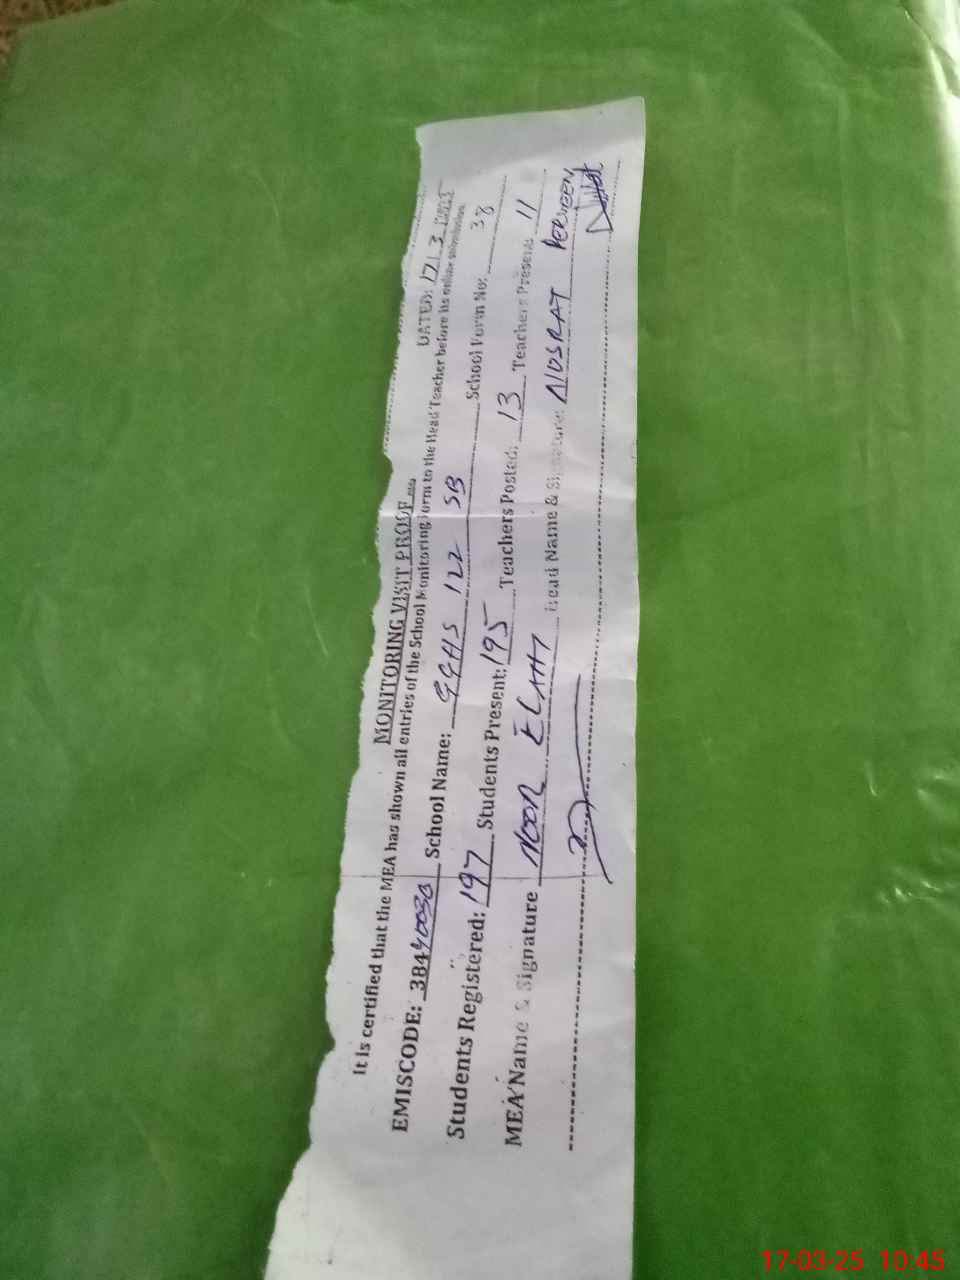 MONITORING VISIT PROOF
DATED: 17/3/2025
It is certified that the MEA has shown all entries of the School Monitoring Form to the Head Teacher before its online submission.
EMISCODE: 38440030 School Name: GGHS 122 SB School Form No: 38
Students Registered: 197 Students Present: 195 Teachers Posted: 13 Teachers Present: 11
MEA Name & Signature NOOR ELAHI Head Name & Signature: NUSRAT PERVEEN
17-03-25 10:45